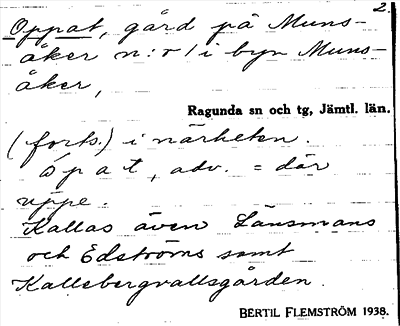 2.
Oppat, gård på Muns-
åker n:r 1 i byn Muns-
åker,
Ragunda sn och tg, Jämtl. län.
(forts.) i närheten.
ò p a t, adv. = där
uppe.
Kallas även Länsmans
och Edströms samt
Kallebergvallsgården.
BERTIL FLEMSTRÖM 1938.